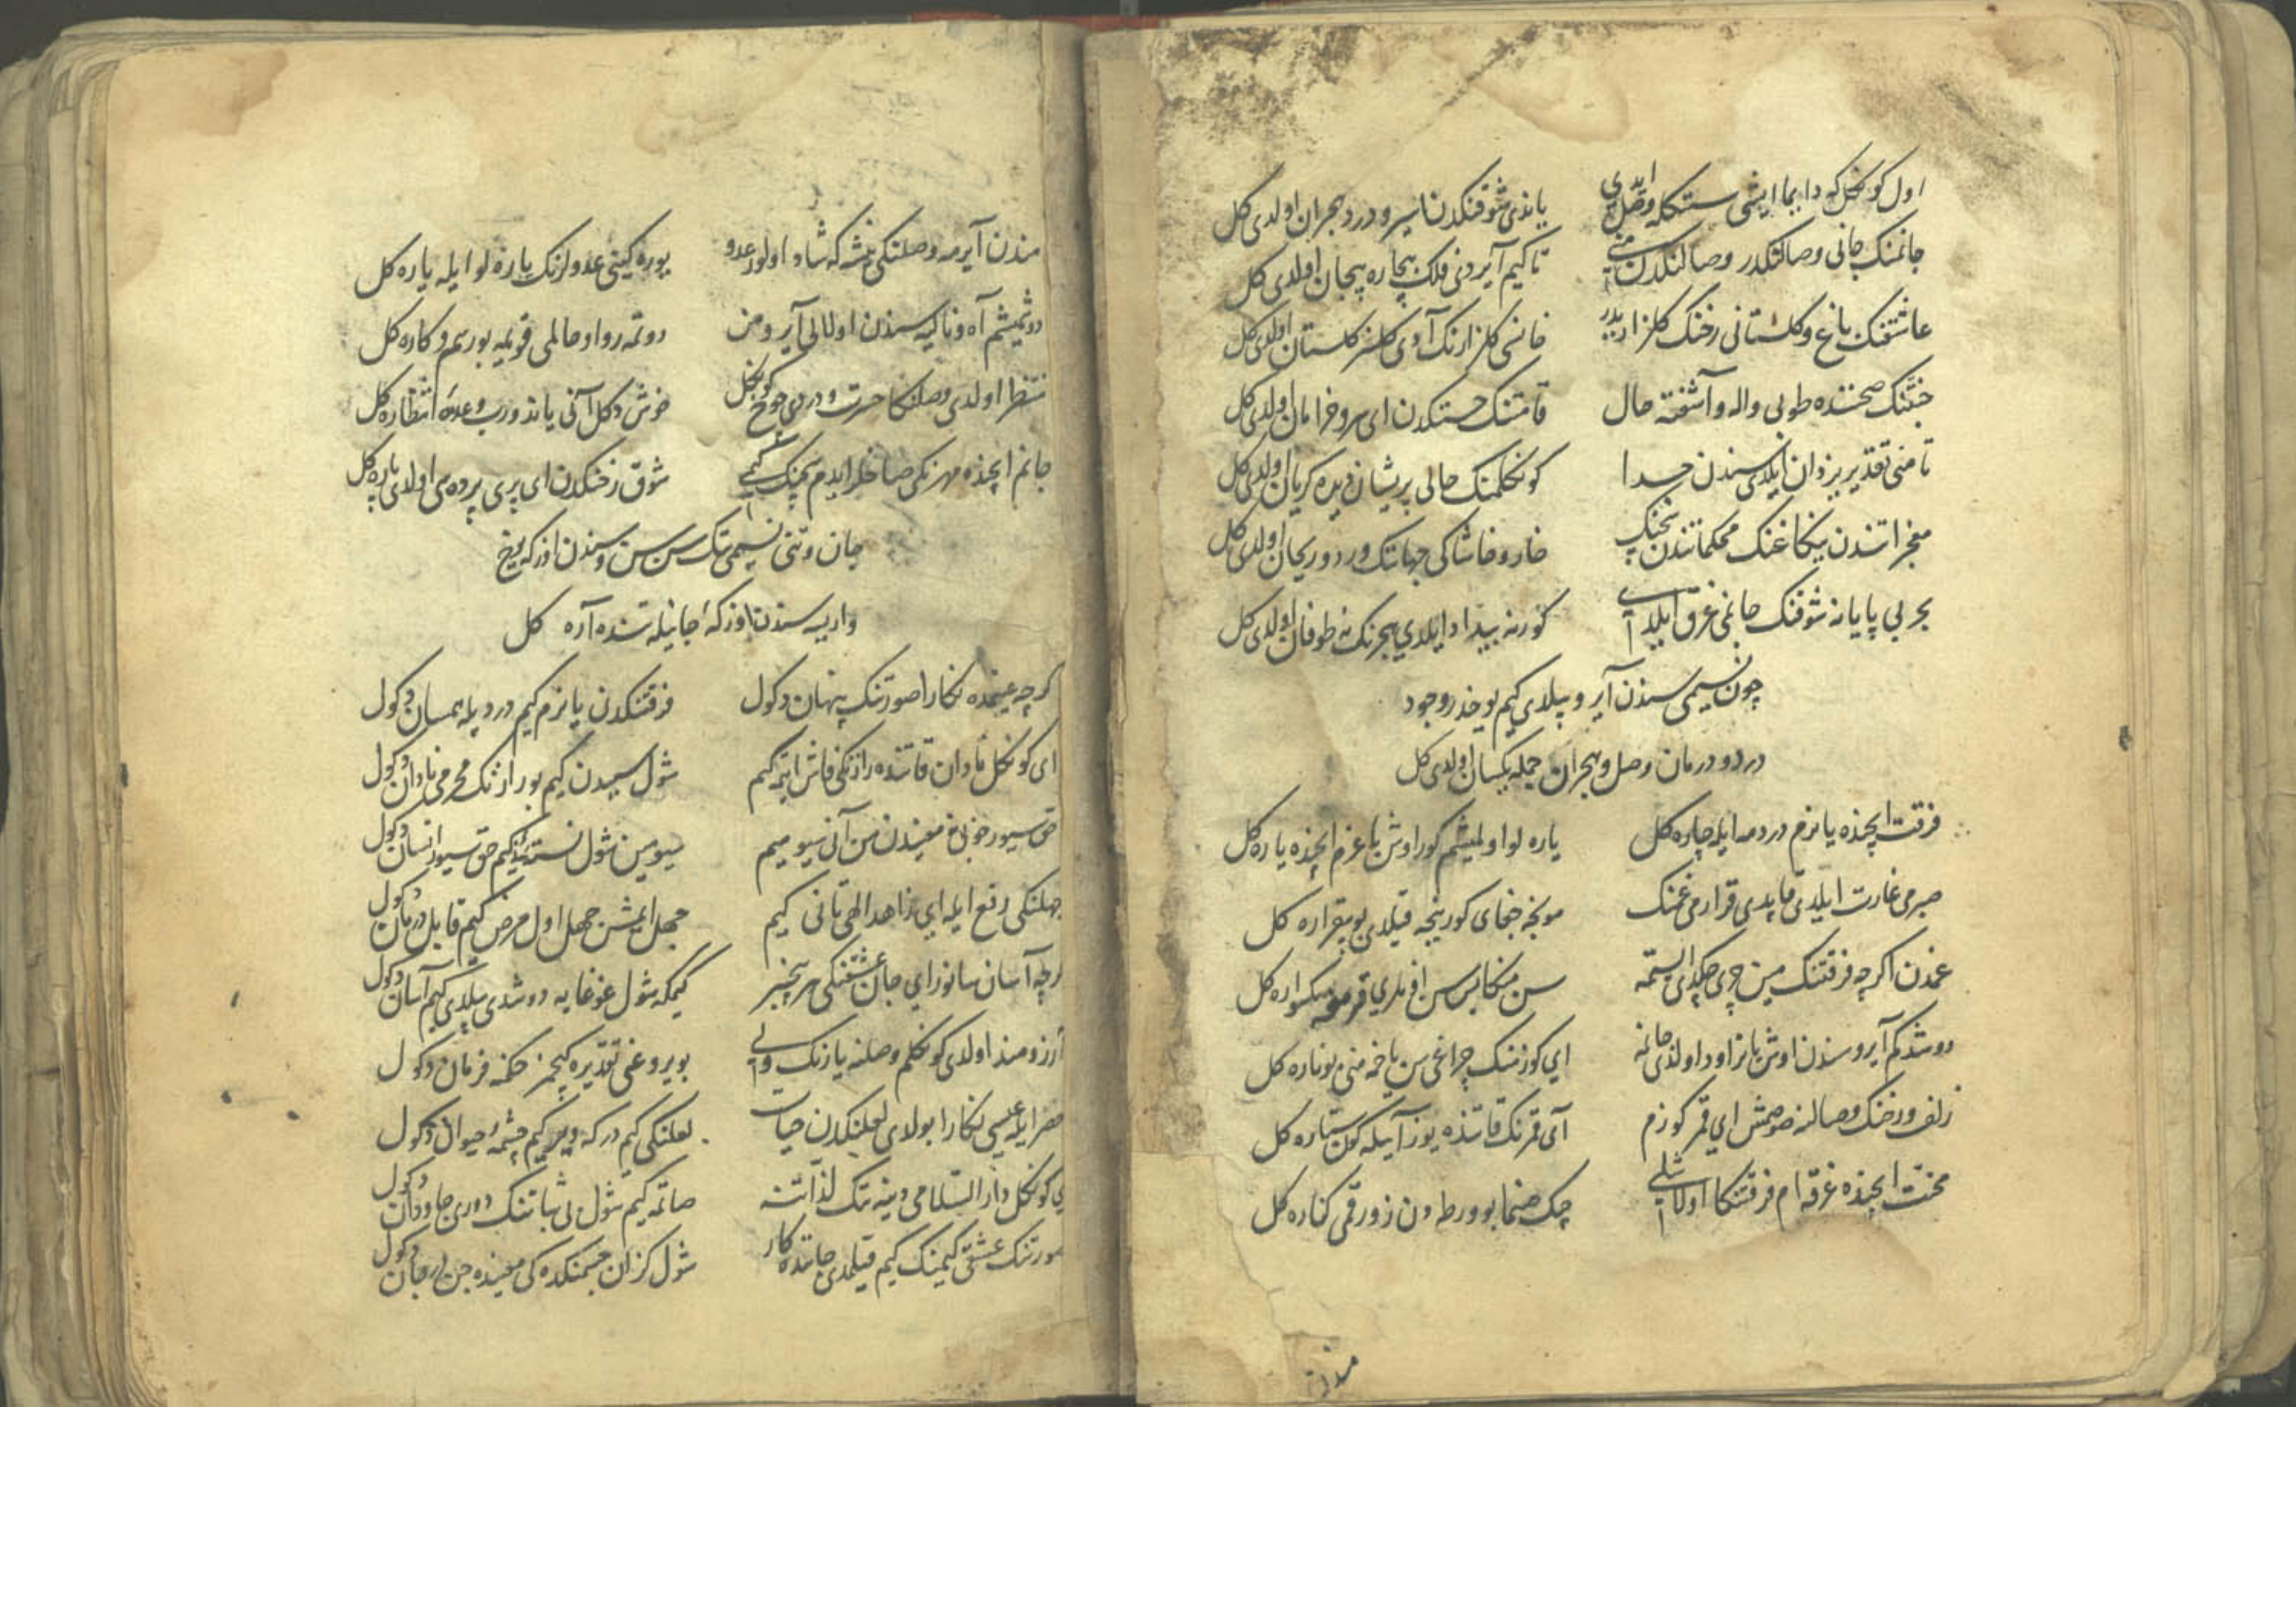 اول کوکل که دایما ایشی سنکله وصل ایدی یاندی شوقنکدن اسیر و درد هجران اولدی کل
جانمنک جانی وصالنکدر وصالنکدن منی تا کیم آیردی فلک بیچاره بیجان اولدی کل
عاشقنک باغ و کلستانی رخنک کلزاریدر قانسی کلزارنک آدی کلسز کلستان اولدی کل
جنتنک صحننده طوبی واله و آشفته حال قامتنک حسنکدن ای سرو خرامان اولدی کل
تا منی تقدیر یزدان ایلدی سندن جدا کوکلمنک حالی پریشان دیده کریان اولدی کل
خار و خاشاکی جهاننک ورد و ریحان اولدی کل
بحر بی پایانه شوقنک جانمی غرق ایلدی کورنه بیداد ایلدی هجرنک نه طوفان اولدی کل
چون نسیمی سندن آیرو بیلدی کیم یوخدر وجود
درد و درمان وصل و هجران جمله یکسان اولدی کل
فرقت ایچنده یانرم دردمه ایله چاره کل یاره لو اولمیشم کور اوش باغرم ایچنده یاره کل
صبرمی غارت ایلدی قاپدی قرارمی غمنک مونجه جفای کورنیجه قیلدی بو بیقراره کل
غمدن اکرچه فرقتنک مین چری چکدی اوستمه سن منکا بس سن
دوشدکم آیرو سندن اوش یانر اود اولدی جانمه ای کوزمنک چراغی سن یاخمه منی بو ناره کل
زلف و رخنک وصالنه صومش ای قمر کوزم آی قمرنک قاتنده یوز آییله کون ستاره کل
محنت ایچنده غرقه ام فرقتنکا اولاشلی چک صنما بو ورطه دن زورقمی کناره کل
مندن
مندن آیرمه وصلنکی غمشه که شاد اولور عدو یوره کینی عدولرنک یاره لو ایله یاره کل
دوتمیشم آه و ناله سندن اولالی آیرو من دوتمه روا و حالمی قویمه بو رسم و کاره کل
منتظر اولدی وصلنکا حسرت و دردی چوخ کوکل خوش دکل آنی یاندورب وعده انتظاره کل
جانم ایچنده مهرنکی صاخلر ایدم شوق رخنکدن ای پری پرده سی اولدی پاره کل
جان و تنی نسیمی تک سن سن و سندن اوزکه یوخ
واریسه سندن اوزکه اجانیله تنده آره کل
کرچه عینمده نکارا صورتنک پنهان دکول فرقتنکدن یانرم کیم درد یله یکسان دکول
ای کوکل نادان قاتنده رازنکی فاش ایتمه کیم شول سبیدن کیم بو رازنک محرمی نادان دکول
حق سیور خوبی معنیدن من آنی سیومیم سیومین شول نسنه کیم حق سیور انسان دکول
جهلنکی رفع ایله ای زاهد الهی تانی کیم جهل ایمش جهل اول مرض کیم قابل درمان دکول
کرچه آسان سانور ای جان عشقنکی هر بیخبر کیمکه شول غوغایه دوشدی بیلدی کیم آسان دکول
آرزومند اولدی کوکلم وصلنه یارنک ولی بویروغی تقدیره کیچمز حکمنه فرمان دکول
خضر ایله عیسی نکارا بولدی لعلنکدن حیات لعلنکی کیم در که دیر کیم چشمه حیوان دکول
ای کوکل دارالسلامی دنیه نک لذاتنه صاتمه کیم شول بی ثباتنک دوری جاودان دکول
صورتنک عشقی کیمنک کیم قیلمدی جاننده کار شول کزان جسمنکده کی معنیده جن در جان دکول